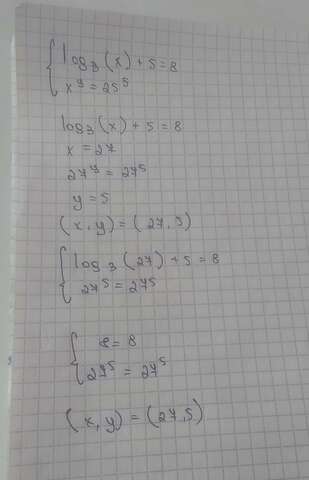 log₃(x) + 5 = 8
x^y = 25⁵
log₃(x) + 5 = 8
x = 27
27^y = 27⁵
y = 5
(x, y) = (27, 5)
log₃(27) + 5 = 8
27⁵ = 27⁵
8 = 8
27⁵ = 27⁵
(x, y) = (27, 5)